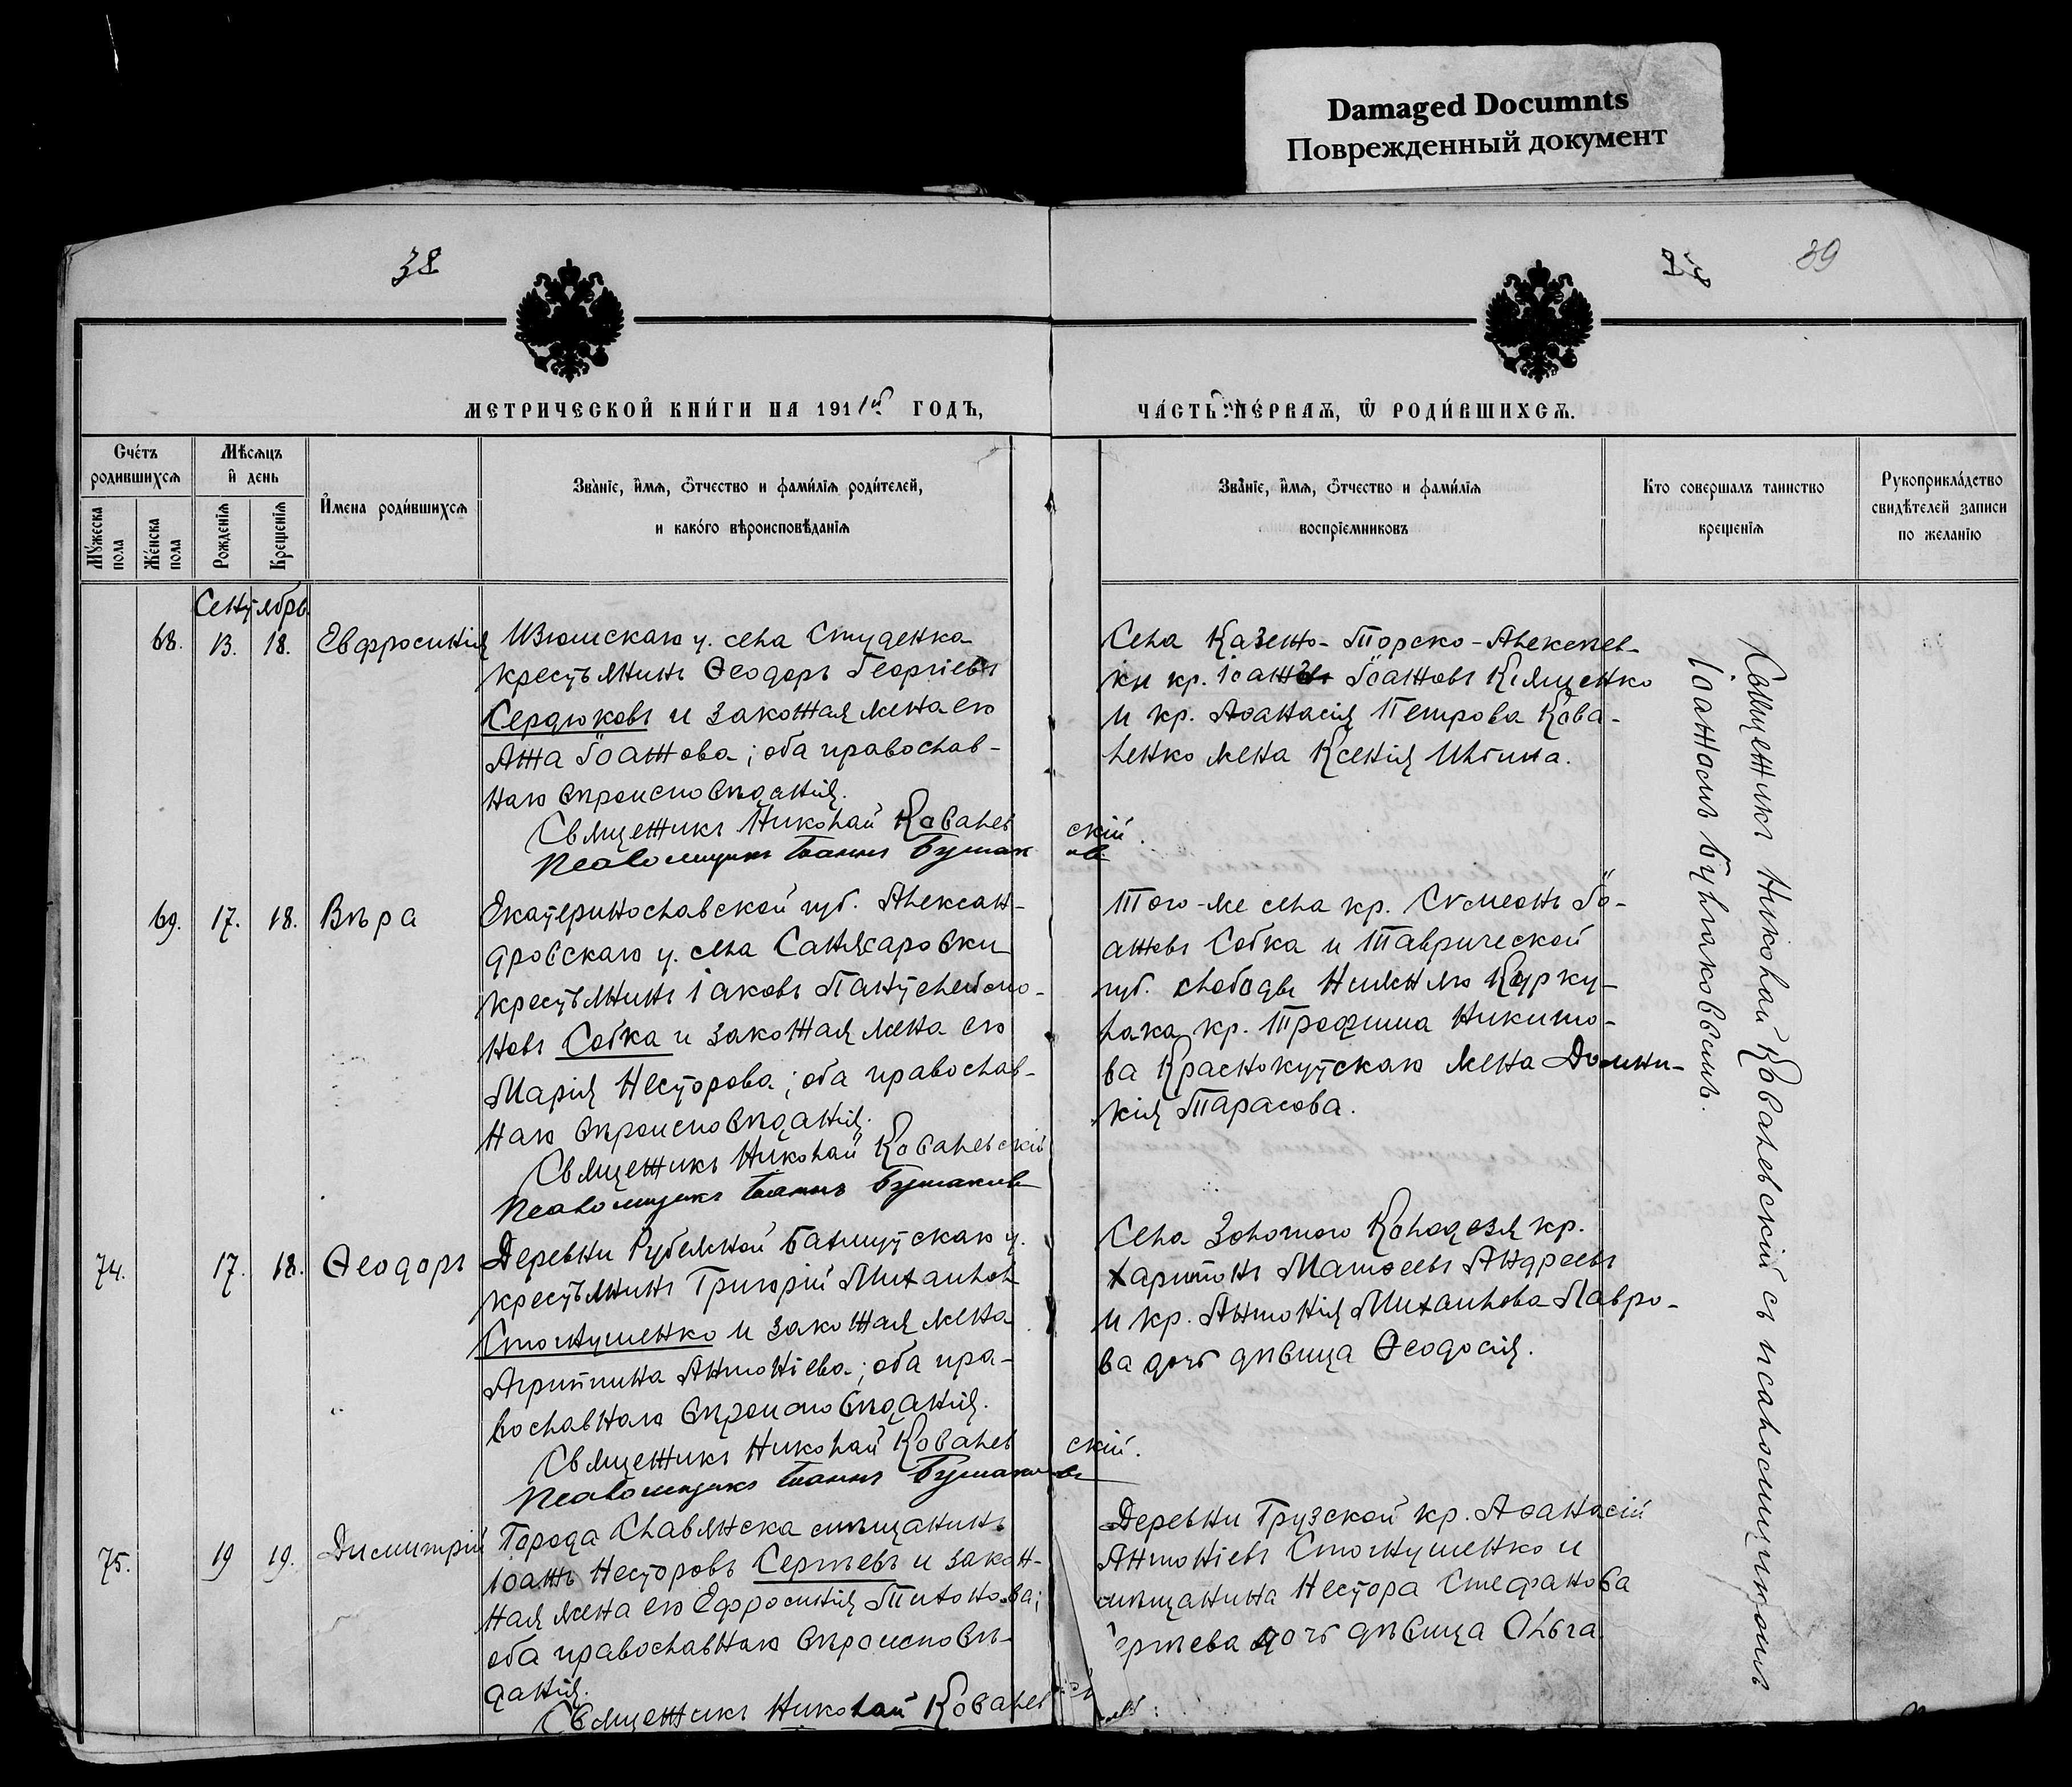 Damaged Documnts
Поврежденный документ
38
39
МЕТРИЧЕСКОЙ КНИ́ГИ НА 1911й ГОДЪ,
ЧА́СТЬ ПЕ́РВАѦ, Ѡ҆ РОДИ́ВШИХСѦ.
Сче́тъ
родившихсѧ
Мѣсѧцъ
и҆ день
И҆мена роди́вшихсѧ
Зва́нїе, и҆́мѧ, ѻ҆́тчество и фами́лїѧ роди́телей,
и како́го вѣроисповѣ́данїѧ
Му́жеска
пола
Же́нска
пола
Рожденїѧ
Крещенїѧ
Зва́нїе, и҆́мѧ, ѻ҆́тчество и фами́лїѧ
воспрїемниковъ
Кто совершалъ таинство
крещенїѧ
Рукоприкла́дство
свидѣтелей записи
по желанїю
Сентябрь
68. 13. 18. Евфросинія Изюмскаго у. села Студенка
крестьянинъ Ѳеодоръ Георгіевъ
Сердюковъ и законная жена его
Анна Іоаннова; оба православ-
наго вѣроисповѣданія.
Священникъ Николай Ковалевскій.
Псаломщикъ Іоаннъ
Села Казенно-Торско-Алексеев-
ки кр. Іоаннъ Іоанновъ Клященко
и кр. Аѳанасія Петрова Кова-
ленко жена Ксенія Ильина.
69. 17. 18. Вѣра Екатеринославской губ. Алексан-
дровскаго у. села Санжаровки
крестьянинъ Іаковъ Пантелеймо-
новъ Собка и законная жена его
Марія Несторова; оба православ-
наго вѣроисповѣданія.
Священникъ Николай Ковалевскій
Псаломщикъ Іоаннъ
Того-же села кр. Сѵмеонъ Іо-
анновъ Собка и Таврической
губ. слободы Нижняго Курку-
лака кр. Трофима Никито-
ва Краснокутскаго жена Домни-
кія Тарасова.
74. 17. 18. Ѳеодоръ Деревни Рубежной Бахмутскаго у.
крестьянинъ Григорій Михаиловъ
Стогнушенко и законная жена
Агриппина Антоніева; оба пра-
вославнаго вѣроисповѣданія.
Священникъ Николай Ковалевскій.
Псаломщикъ Іоаннъ
Села Золотого Колодезя кр.
Харитонъ Матѳеевъ Андреевъ
и кр. Антонія Михаилова Лавро-
ва дочь дѣвица Ѳеодосія.
75. 19 19. Димитрій Города Славянска мѣщанинъ
Іоаннъ Несторовъ Сергѣевъ и закон-
ная жена его Ефросинія Тихонова;
оба православнаго вѣроисповѣ-
данія.
Священникъ Николай Ковалев
Деревни Грузской кр. Аѳанасій
Антоніевъ Стогнушенко и
мѣщанина Нестора Стефанова
ергѣева дочь дѣвица Ольга.
Священникъ Николай Ковалевскій съ псаломщикомъ